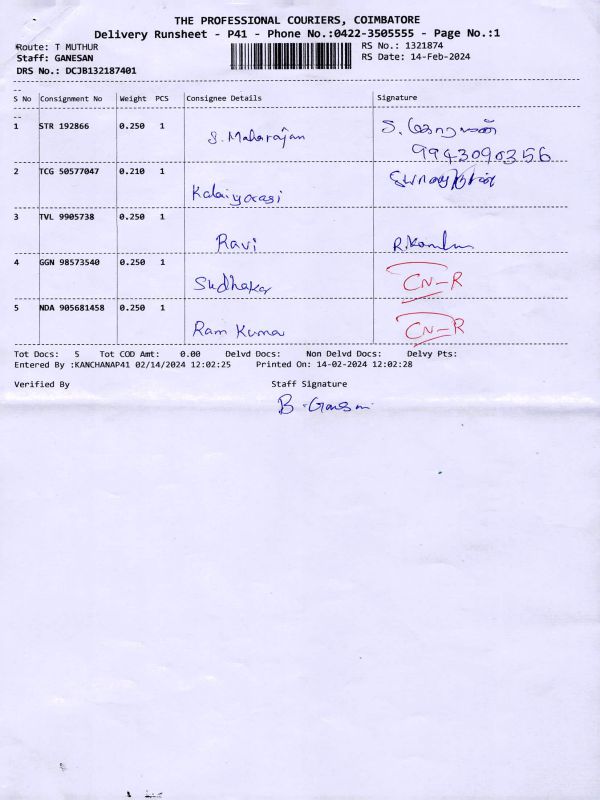 THE PROFESSIONAL COURIERS, COIMBATORE
Delivery Runsheet - P41 - Phone No.:0422-3505555 - Page No.:1
Route: T MUTHUR RS No.: 1321874
Staff: GANESAN RS Date: 14-Feb-2024
DRS No.: DCJB132187401
S No Consignment No Weight PCS Consignee Details Signature
1 STR 192866 0.250 1 S. Maharajan
9943090356
2 TCG 50577047 0.210 1 Kalaiyarasi
3 TVL 9905738 0.250 1 Ravi
4 GGN 98573540 0.250 1 Sudhakar CN-R
5 NDA 905681458 0.250 1 Ram Kumar CN-R
Tot Docs: 5 Tot COD Amt: 0.00 Delvd Docs: Non Delvd Docs: Delvy Pts:
Entered By :KANCHANAP41 02/14/2024 12:02:25 Printed On: 14-02-2024 12:02:28
Verified By Staff Signature